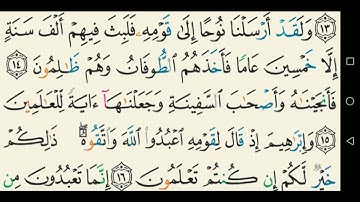 ﴿١٣﴾ وَلَقَدْ أَرْسَلْنَا نُوحًا إِلَىٰ قَوْمِهِۦ فَلَبِثَ فِيهِمْ أَلْفَ سَنَةٍ
إِلَّا خَمْسِينَ عَامًا فَأَخَذَهُمُ ٱلطُّوفَانُ وَهُمْ ظَـٰلِمُونَ ﴿١٤﴾
فَأَنجَيْنَـٰهُ وَأَصْحَـٰبَ ٱلسَّفِينَةِ وَجَعَلْنَـٰهَآ ءَايَةً لِّلْعَـٰلَمِينَ
﴿١٥﴾ وَإِبْرَٰهِيمَ إِذْ قَالَ لِقَوْمِهِ ٱعْبُدُوا۟ ٱللَّهَ وَٱتَّقُوهُ ۖ ذَٰلِكُمْ
خَيْرٌ لَّكُمْ إِن كُنتُمْ تَعْلَمُونَ ﴿١٦﴾ إِنَّمَا تَعْبُدُونَ مِن